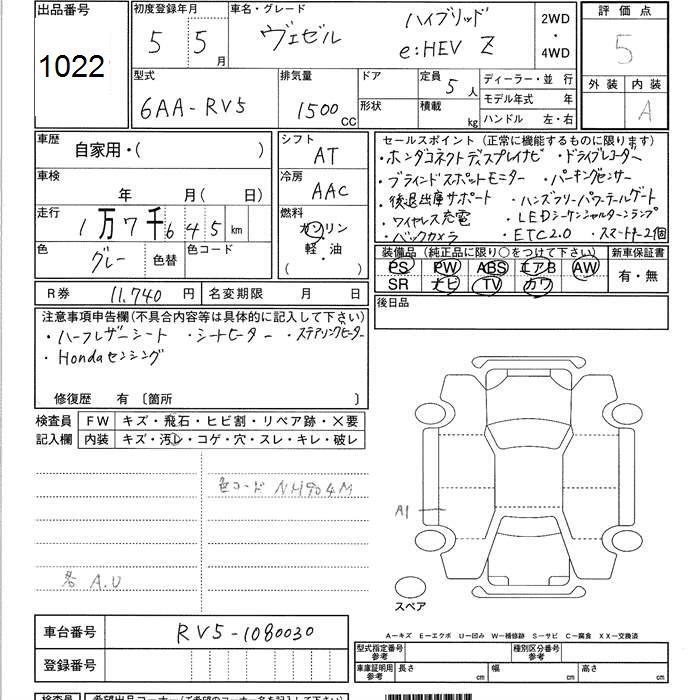 出品番号
1022
初度登録年月
5 5月
車名・グレード
ヴェゼル
ハイブリッド
e:HEV Z
2WD
・
4WD
評価点
5
外装 内装
A
型式
6AA-RV5
排気量
1500 CC
ドア
形状
定員 5人
積載 kg
ディーラー・並行
モデル年式 年
ハンドル 左・右
車歴
自家用・( )
車検
年 月( 日)
走行
1万7千645km
色
グレー
色替
色コード
シフト
AT
冷房
AAC
燃料
ガソリン
軽・油
( ・ )
セールスポイント(正常に機能するものに限ります)
・ホンダコネクトディスプレイナビ ・ドライブレコーダー
・ブラインドスポットモニター ・パーキングセンサー
・後退出庫サポート ・ハンズフリーパワーテールゲート
・ワイヤレス充電 ・LEDシーケンシャルターンランプ
・バックカメラ ・ETC2.0 ・スマートキー2個
装備品(純正品に限り○をつけて下さい)
PS PW ABS エアB AW
SR ナビ TV カワ
新車保証書
有・無
R券 11,740円
名変期限 月 日
後日品
注意事項申告欄(不具合内容等は具体的に記入して下さい)
・ハーフレザーシート ・シートヒーター ・ステアリングヒーター
・Hondaセンシング
修復歴 有 〔箇所 〕
検査員
記入欄
FW キズ・飛石・ヒビ割・リペア跡・×要
内装 キズ・汚レ・コゲ・穴・スレ・キレ・破レ
色コード NH904M
各 A.U
A1
スペア
A―キズ E―エクボ U―凹み W―補修跡 S―サビ C―腐食 XX―交換済
車台番号 RV5-1080030
登録番号
型式指定番号
参考
種別区分番号
参考
車庫証明用
参考
長さ cm
幅 cm
高さ cm
検査員
希望出品コーナー(ご希望のコーナー名を記入下さい)